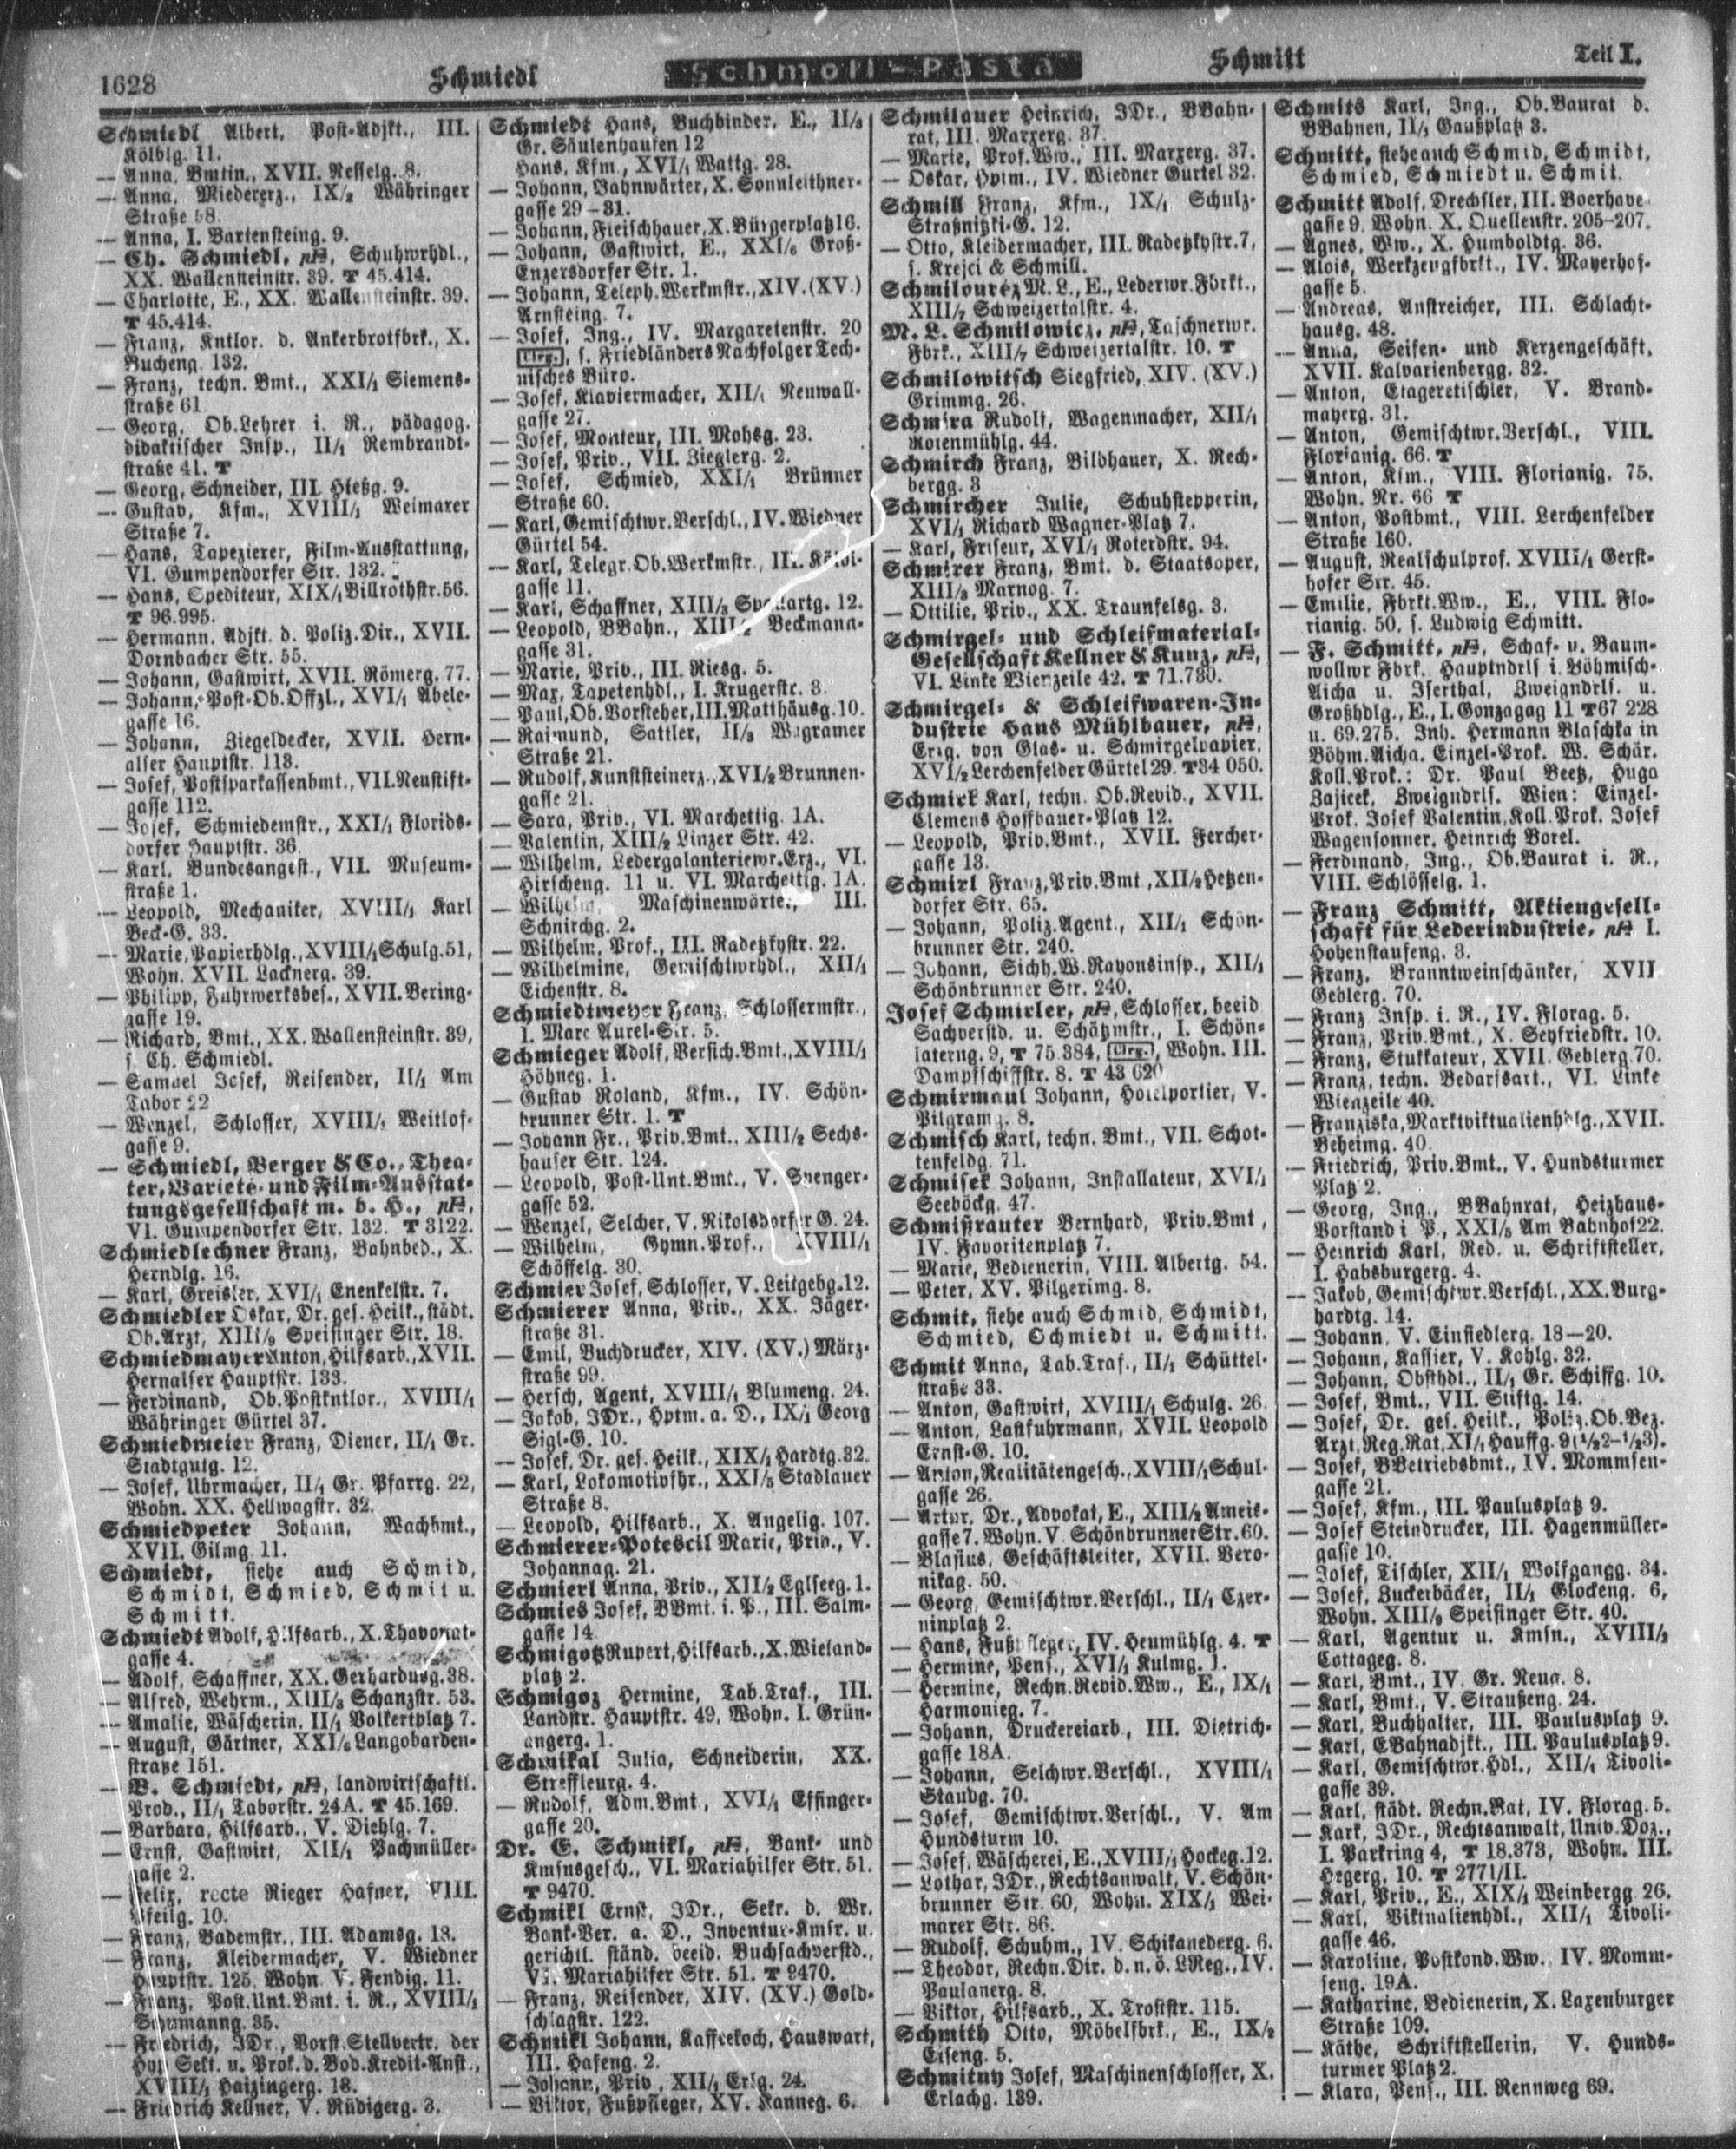 1628
Schmiedl
Schmoll-Pasta
Schmitt
Teil I.
Schmiedl Albert, Post-Adjkt., III.
Kölblg. 11.
— Anna, Bmtin., XVII. Nesselg. 8.
— Anna, Miedererz., IX/2 Währinger
Straße 58.
— Anna, I. Bartensteing. 9.
— Ch. Schmiedl, Schuhwrhdl.,
XX. Wallensteinstr. 39. T 45.414.
— Charlotte, E., XX. Wallensteinstr. 39.
T 45.414.
— Franz, Kntlor. d. Ankerbrotfbrk., X.
Bucheng. 132.
— Franz, techn. Bmt., XXI/1 Siemens-
straße 61
— Georg, Ob.Lehrer i. R., pädagog.
didaktischer Insp., II/1 Rembrandt-
straße 41. T
— Georg, Schneider, III. Hießg. 9.
— Gustav, Kfm., XVIII/1 Weimarer
Straße 7.
— Hans, Tapezierer, Film-Ausstattung,
VI. Gumpendorfer Str. 132.
— Hans, Spediteur, XIX/1 Billrothstr. 56.
T 96.995.
— Hermann, Adjkt. d. Poliz.Dir., XVII.
Dornbacher Str. 55.
— Johann, Gastwirt, XVII. Römerg. 77.
— Johann, Post-Ob.Offzl., XVI/1 Abele-
gasse 16.
— Johann, Ziegeldecker, XVII. Hern-
alser Hauptstr. 113.
— Josef, Postsparkassenbmt., VII. Neustift-
gasse 112.
— Josef, Schmiedemstr., XXI/1 Florids-
dorfer Hauptstr. 36.
— Karl, Bundesangest., VII. Museum-
straße 1.
— Leopold, Mechaniker, XVIII/1 Karl
Beck-G. 33.
— Marie, Papierhdlg., XVIII/1 Schulg. 51,
Wohn. XVII. Lacknerg. 39.
— Philipp, Fuhrwerksbes., XVII. Bering-
gasse 19.
— Richard, Bmt., XX. Wallensteinstr. 39,
s. Ch. Schmiedl.
— Samuel Josef, Reisender, II/1 Am
Tabor 22
— Wenzel, Schlosser, XVIII/1 Weitlof-
gasse 9.
— Schmiedl, Berger & Co., Thea-
ter, Varieté- und Film-Ausstat-
tungsgesellschaft m. b. H.,
VI. Gumpendorfer Str. 132. T 3122.
Schmiedlechner Franz, Bahnbed., X.
Herndlg. 16.
— Karl, Greisler, XVI/1 Enenkelstr. 7.
Schmiedler Oskar, Dr. ges. Heilk., städt.
Ob.Arzt, XIII/9 Speisinger Str. 18.
Schmiedmayer Anton, Hilfsarb., XVII.
Hernalser Hauptstr. 133.
— Ferdinand, Ob.Postkntlor., XVIII/1
Währinger Gürtel 37.
Schmiedmeier Franz, Diener, II/1 Gr.
Stadtgutg. 12.
— Josef, Uhrmacher, II/1 Gr. Pfarrg. 22,
Wohn. XX. Hellwagstr. 32.
Schmiedpeter Johann, Wachbmt.,
XVII. Gilmg. 11.
Schmiedt, siehe auch Schmid,
Schmidt, Schmied, Schmit u.
Schmitt.
Schmiedt Adolf, Hilfsarb., X. Thavonat-
gasse 4.
— Adolf, Schaffner, XX. Gerhardusg. 38.
— Alfred, Wehrm., XIII/3 Schanzstr. 53.
— Amalie, Wäscherin, II/1 Volkertplatz 7.
— August, Gärtner, XXI/6 Langobarden-
straße 151.
— B. Schmiedt, landwirtschaftl.
Prod., II/1 Taborstr. 24A. T 45.169.
— Barbara, Hilfsarb., V. Diehlg. 7.
— Ernst, Gastwirt, XII/1 Pachmüller-
gasse 2.
— Felix, recte Rieger Hafner, VIII.
Pfeilg. 10.
— Franz, Bademstr., III. Adamsg. 18.
— Franz, Kleidermacher, V. Wiedner
Hauptstr. 125, Wohn. V. Fendig. 11.
— Franz, Post.Unt.Bmt. i. R., XVIII/1
Schumanng. 35.
— Friedrich, JDr., Vorst.Stellvertr. der
Hyp Sekt. u. Prok. d. Bod.Kredit-Anst.,
XVIII/1 Haizingerg. 18.
— Friedrich Kellner, V. Rüdigerg. 3.
Schmiedt Hans, Buchbinder, E., II/3
Gr. Säulenhaufen 12
Hans, Kfm., XVI/1 Wattg. 28.
— Johann, Bahnwärter, X. Sonnleithner-
gasse 29–31.
— Johann, Fleischhauer, X. Bürgerplatz 16.
— Johann, Gastwirt, E., XXI/6 Groß-
Enzersdorfer Str. 1.
— Johann, Teleph.Werkmstr., XIV. (XV.)
Arnsteing. 7.
— Josef, Ing., IV. Margaretenstr. 20
[Clrg.], s. Friedländers Nachfolger Tech-
nisches Büro.
— Josef, Klaviermacher, XII/1 Neuwall-
gasse 27.
— Josef, Monteur, III. Mohsg. 23.
— Josef, Priv., VII. Zieglerg. 2.
— Josef, Schmied, XXI/1 Brünner
Straße 60.
— Karl, Gemischtwr.Verschl., IV. Wiedner
Gürtel 54.
— Karl, Telegr.Ob.Werkmstr., III. Kölbl-
gasse 11.
— Karl, Schaffner, XIII/3 Spallartg. 12.
— Leopold, BBahn., XIII/2 Beckmann-
gasse 31.
— Marie, Priv., III. Riesg. 5.
— Max, Tapetenhdl., I. Krugerstr. 3.
— Paul, Ob.Vorsteher, III. Matthäusg. 10.
— Raimund, Sattler, II/3 Wagramer
Straße 21.
— Rudolf, Kunststeinerz., XVI/2 Brunnen-
gasse 21.
— Sara, Priv., VI. Marchettig. 1A.
— Valentin, XIII/2 Linzer Str. 42.
— Wilhelm, Ledergalanteriewr.Erz., VI.
Hirscheng. 11 u. VI. Marchettig. 1A.
— Wilhelm, Maschinenwärter, III.
Schnirchg. 2.
— Wilhelm, Prof., III. Radetzkystr. 22.
— Wilhelmine, Gemischtwrhdl., XII/1
Eichenstr. 8.
Schmiedtmeyer Franz, Schlossermstr.,
I. Marc Aurel-Str. 5.
Schmieger Adolf, Versich.Bmt., XVIII/1
Höhneg. 1.
— Gustav Roland, Kfm., IV. Schön-
brunner Str. 1. T
— Johann Fr., Priv.Bmt., XIII/2 Sechs-
hauser Str. 124.
— Leopold, Post-Unt.Bmt., V. Spenger-
gasse 52.
— Wenzel, Selcher, V. Nikolsdorfer G. 24.
— Wilhelm, Gymn.Prof., XVIII/1
Schöffelg. 30.
Schmier Josef, Schlosser, V. Leitgebg. 12.
Schmierer Anna, Priv., XX. Jäger-
straße 31.
— Emil, Buchdrucker, XIV. (XV.) März-
straße 99.
— Hersch, Agent, XVIII/1 Blumeng. 24.
— Jakob, JDr., Hptm. a. D., IX/1 Georg
Sigl-G. 10.
— Josef, Dr. ges. Heilk., XIX/1 Hardtg. 32.
— Karl, Lokomotivfhr., XXI/5 Stadlauer
Straße 8.
— Leopold, Hilfsarb., X. Angelig. 107.
Schmierer-Potescil Marie, Priv., V.
Johannag. 21.
Schmierl Anna, Priv., XII/2 Eglseeg. 1.
Schmies Josef, BBmt. i. P., III. Salm-
gasse 14
Schmigotz Rupert, Hilfsarb., X. Wieland-
platz 2.
Schmigoz Hermine, Tab.Traf., III.
Landstr. Hauptstr. 49, Wohn. I. Grün-
angerg. 1.
Schmikal Julia, Schneiderin, XX.
Streffleurg. 4.
— Rudolf, Adm.Bmt., XVI/1 Effinger-
gasse 20.
Dr. E. Schmikl, Bank- und
Kmsnsgesch., VI. Mariahilfer Str. 51.
T 9470.
Schmikl Ernst, JDr., Sekr. d. Wr.
Bank-Ver. a. D., Inventur-Kmsr. u.
gerichtl. ständ. beeid. Buchsachverstd.,
VI. Mariahilfer Str. 51. T 9470.
— Franz, Reisender, XIV. (XV.) Gold-
schlagstr. 122.
Schmikl Johann, Kaffeekoch, Hauswart,
III. Hafeng. 2.
— Johann, Priv., XII/1 Erlg. 24.
— Viktor, Fußpfleger, XV. Kanneg. 6.
Schmilauer Heinrich, JDr., BBahn-
rat, III. Marxerg. 37.
— Marie, Prof.Ww., III. Marxerg. 37.
— Oskar, Hptm., IV. Wiedner Gürtel 32.
Schmill Franz, Kfm., IX/1 Schulz-
Straßnitzki-G. 12.
— Otto, Kleidermacher, III. Radetzkystr. 7,
s. Krejci & Schmill.
Schmilouréz M. L., E., Lederwr.Fbrkt.,
XIII/7 Schweizertalstr. 4.
M. L. Schmilowicz, Taschnerwr.
Fbrk., XIII/7 Schweizertalstr. 10. T
Schmilowitsch Siegfried, XIV. (XV.)
Grimmg. 26.
Schmira Rudolf, Wagenmacher, XII/1
Rotenmühlg. 44.
Schmirch Franz, Bildhauer, X. Rech-
bergg. 3
Schmircher Julie, Schuhstepperin,
XVI/1 Richard Wagner-Platz 7.
— Karl, Friseur, XVI/1 Roterdstr. 94.
Schmirer Franz, Bmt. d. Staatsoper,
XIII/3 Marnog. 7.
— Ottilie, Priv., XX. Traunfelsg. 3.
Schmirgel- und Schleifmaterial-
Gesellschaft Kellner & Kunz,
VI. Linke Wienzeile 42. T 71.730.
Schmirgel- & Schleifwaren-In-
dustrie Hans Mühlbauer,
Erzg. von Glas- u. Schmirgelpapier,
XVI/2 Lerchenfelder Gürtel 29. T 34 050.
Schmirk Karl, techn. Ob.Revid., XVII.
Clemens Hoffbauer-Platz 12.
— Leopold, Priv.Bmt., XVII. Fercher-
gasse 13.
Schmirl Franz, Priv.Bmt., XII/2 Hetzen-
dorfer Str. 65.
— Johann, Poliz.Agent., XII/1 Schön-
brunner Str. 240.
— Johann, Sichh.W.Rayonsinsp., XII/1
Schönbrunner Str. 240.
Josef Schmirler, Schlosser, beeid
Sachverstd. u. Schätzmstr., I. Schön-
laterng. 9, T 75.384, [Clrg.], Wohn. III.
Dampfschiffstr. 8. T 43 620
Schmirmaul Johann, Hotelportier, V.
Pilgramg. 8.
Schmisch Karl, techn. Bmt., VII. Schot-
tenfeldg. 71.
Schmisek Johann, Installateur, XVI/1
Seeböckg. 47.
Schmißrauter Bernhard, Priv.Bmt.,
IV. Favoritenplatz 7.
— Marie, Bedienerin, VIII. Albertg. 54.
— Peter, XV. Pilgerimg. 8.
Schmit, siehe auch Schmid, Schmidt,
Schmied, Schmiedt u. Schmitt.
Schmit Anna, Tab.Traf., II/1 Schüttel-
straße 33.
— Anton, Gastwirt, XVIII/1 Schulg. 26.
— Anton, Lastfuhrmann, XVII. Leopold
Ernst-G. 10.
— Anton, Realitätengesch., XVIII/1 Schul-
gasse 26.
— Artur, Dr., Advokat, E., XIII/2 Ameis-
gasse 7. Wohn. V. Schönbrunner Str. 60.
— Blasius, Geschäftsleiter, XVII. Vero-
nikag. 50.
— Georg, Gemischtwr.Verschl., II/1 Czer-
ninplatz 2.
— Hans, Fußpfleger, IV. Heumühlg. 4. T
— Hermine, Pens., XVI/1 Kulmg. 1.
— Hermine, Rechn.Revid.Ww., E., IX/1
Harmonieg. 7.
— Johann, Druckereiarb., III. Dietrich-
gasse 18A.
— Johann, Selchwr.Verschl., XVIII/1
Staudg. 70.
— Josef, Gemischtwr.Verschl., V. Am
Hundsturm 10.
— Josef, Wäscherei, E., XVIII/1 Hockeg. 12.
— Lothar, JDr., Rechtsanwalt, V. Schön-
brunner Str. 60, Wohn. XIX/1 Wei-
marer Str. 86.
— Rudolf, Schuhm., IV. Schikanederg. 6.
— Theodor, Rechn.Dir. d. n. ö. LReg., IV.
Paulanerg. 8.
— Viktor, Hilfsarb., X. Troststr. 115.
Schmith Otto, Möbelfbrk., E., IX/2
Eiseng. 5.
Schmitny Josef, Maschinenschlosser, X.
Erlachg. 139.
Schmits Karl, Ing., Ob.Baurat d.
BBahnen, II/1 Gaußplatz 3.
Schmitt, siehe auch Schmid, Schmidt,
Schmied, Schmiedt u. Schmit.
Schmitt Adolf, Drechsler, III. Boerhave-
gasse 9. Wohn. X. Quellenstr. 205–207.
— Agnes, Ww., X. Humboldtg. 36.
— Alois, Werkzeugfbrkt., IV. Mayerhof-
gasse 5.
— Andreas, Anstreicher, III. Schlacht-
hausg. 48.
— Anna, Seifen- und Kerzengeschäft,
XVII. Kalvarienbergg. 32.
— Anton, Etageretischler, V. Brand-
mayerg. 31.
— Anton, Gemischtwr.Verschl., VIII.
Florianig. 66. T
— Anton, Kfm., VIII. Florianig. 75.
Wohn. Nr. 66 T
— Anton, Postbmt., VIII. Lerchenfelder
Straße 160.
— August, Realschulprof. XVIII/1 Gerst-
hofer Str. 45.
— Emilie, Fbrkt.Ww., E., VIII. Flo-
rianig. 50, s. Ludwig Schmitt.
— F. Schmitt, Schaf- u. Baum-
wollwr Fbrk. Hauptndrls i. Böhmisch-
Aicha u. Iserthal, Zweigndrls. u.
Großhdlg., E., I. Gonzagag 11 T 67 228
u. 69.275. Inh. Hermann Blaschka in
Böhm.Aicha. Einzel-Prok. W. Schär.
Koll.Prok.: Dr. Paul Beetz, Hugo
Zajicek, Zweigndrls. Wien: Einzel-
Prok. Josef Valentin, Koll.Prok. Josef
Wagensonner, Heinrich Borel.
— Ferdinand, Ing., Ob.Baurat i. R.,
VIII. Schlösselg. 1.
— Franz Schmitt, Aktiengesell-
schaft für Lederindustrie, I.
Hohenstaufeng. 3.
— Franz, Branntweinschänker, XVII
Geblerg. 70.
— Franz Insp. i. R., IV. Florag. 5.
— Franz, Priv.Bmt., X. Seyfriedstr. 10.
— Franz, Stukkateur, XVII. Geblerg. 70.
— Franz, techn. Bedarfsart., VI. Linke
Wienzeile 40.
— Franziska, Marktviktualienhdlg., XVII.
Beheimg. 40.
— Friedrich, Priv.Bmt., V. Hundsturmer
Platz 2.
— Georg, Ing., BBahnrat, Heizhaus-
Vorstand i P., XXI/5 Am Bahnhof 22.
— Heinrich Karl, Red. u. Schriftsteller,
I. Habsburgerg. 4.
— Jakob, Gemischtwr.Verschl., XX. Burg-
hardtg. 14.
— Johann, V. Einsiedlerg. 18—20.
— Johann, Kassier, V. Kohlg. 32.
— Johann, Obsthdl., II/1 Gr. Schiffg. 10.
— Josef, Bmt., VII. Stiftg. 14.
— Josef, Dr. ges. Heilk., Poliz.Ob.Bez.
Arzt, Reg.Rat, XI/1 Hauffg. 9 (1/22–1/23).
— Josef, BBetriebsbmt., IV. Mommsen-
gasse 21.
— Josef, Kfm., III. Paulusplatz 9.
— Josef Steindrucker, III. Hagenmüller-
gasse 10.
— Josef, Tischler, XII/1 Wolfgangg. 34.
— Josef, Zuckerbäcker, II/1 Glockeng. 6,
Wohn. XIII/9 Speisinger Str. 40.
— Karl, Agentur u. Kmsn., XVIII/3
Cottageg. 8.
— Karl, Bmt., IV. Gr. Neug. 8.
— Karl, Bmt., V. Straußeng. 24.
— Karl, Buchhalter, III. Paulusplatz 9.
— Karl, EBahnadjkt., III. Paulusplatz 9.
— Karl, Gemischtwr.Hdl., XII/1 Tivoli-
gasse 39.
— Karl, städt. Rechn.Rat, IV. Florag. 5.
— Karl, JDr., Rechtsanwalt, Univ.Doz.,
I. Parkring 4, T 18.373, Wohn. III.
Hegerg. 10. T 2771/II.
— Karl, Priv., E., XIX/1 Weinbergg. 26.
— Karl, Viktualienhdl., XII/1 Tivoli-
gasse 46.
— Karoline, Postkond.Ww., IV. Momm-
seng. 19A.
— Katharine, Bedienerin, X. Laxenburger
Straße 109.
— Käthe, Schriftstellerin, V. Hunds-
turmer Platz 2.
— Klara, Pens., III. Rennweg 69.